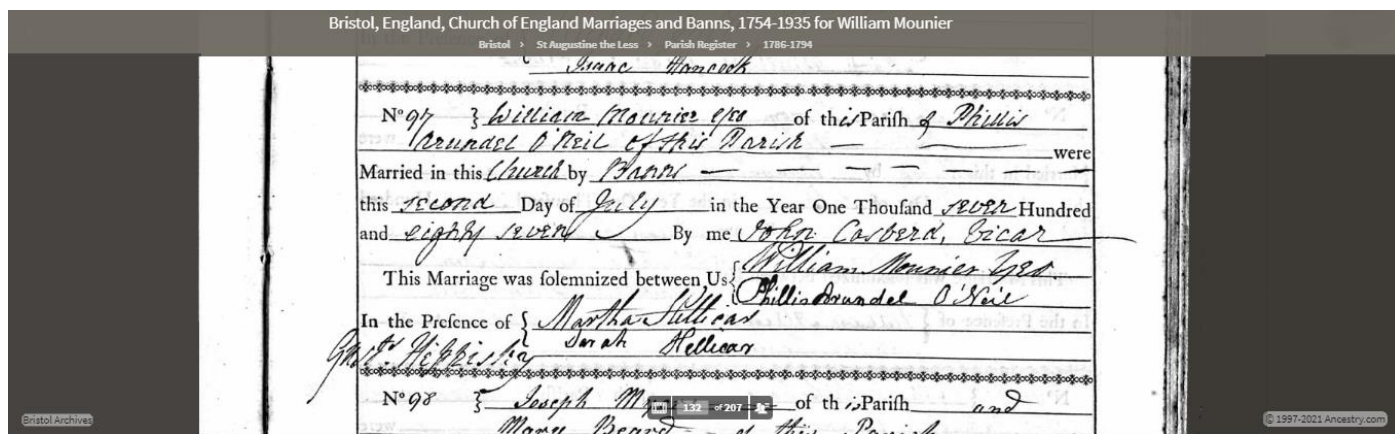 Bristol, England, Church of England Marriages and Banns, 1754-1935 for William Mounier
Bristol > St Augustine the Less > Parish Register > 1786-1794
Isaac Hancock
Nº 97 } William Mounier of this Parish & Phillis
Arundel O'Neil of this Parish — — were
Married in this Church by Banns — — — —
this second Day of July in the Year One Thouſand seven Hundred
and eighty seven By me John Casberd, Vicar
This Marriage was ſolemnized between Us { William Mounier
Phillis Arundel O'Neil
In the Preſence of { Martha Hellicar
Sarah Hellicar
Hippisley
Nº 98 } Joseph of this Pariſh and
132 of 207
Mary Beard of this Parish
Bristol Archives
© 1997-2021 Ancestry.com